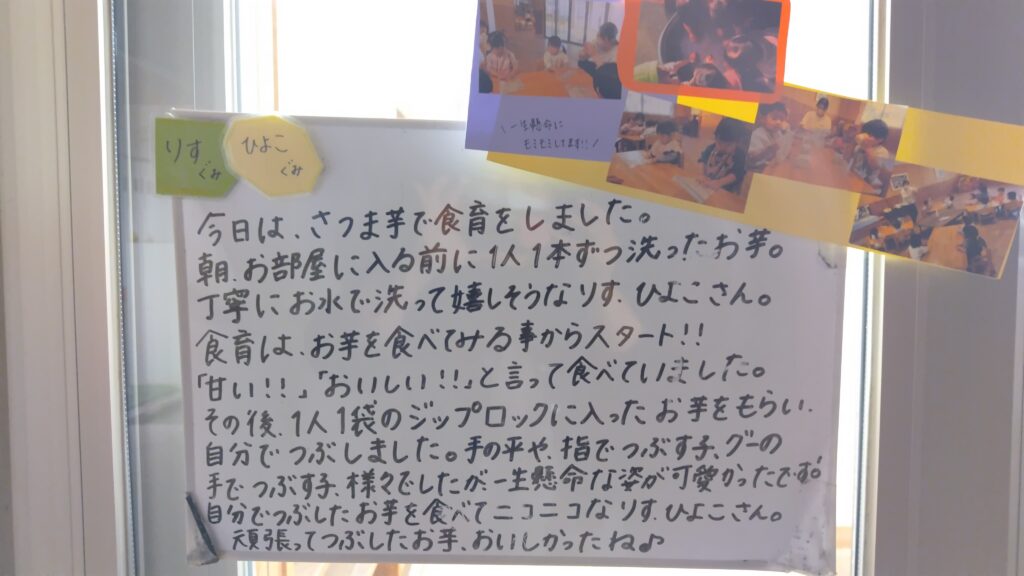 りす
ぐみ
ひよこ
ぐみ
\一生懸命に
モミモミしてます!!/
今日は、さつま芋で食育をしました。
朝、お部屋に入る前に1人1本ずつ洗ったお芋。
丁寧にお水で洗って嬉しそうなりす、ひよこさん。
食育は、お芋を食べてみる事からスタート!!
「甘い!!」「おいしい!!」と言って食べていました。
その後、1人1袋のジップロックに入ったお芋をもらい、
自分でつぶしました。手の平や、指でつぶす子、グーの
手でつぶす子、様々でしたが一生懸命な姿が可愛かったです!
自分でつぶしたお芋を食べてニコニコなりす、ひよこさん。
頑張ってつぶしたお芋、おいしかったね♪